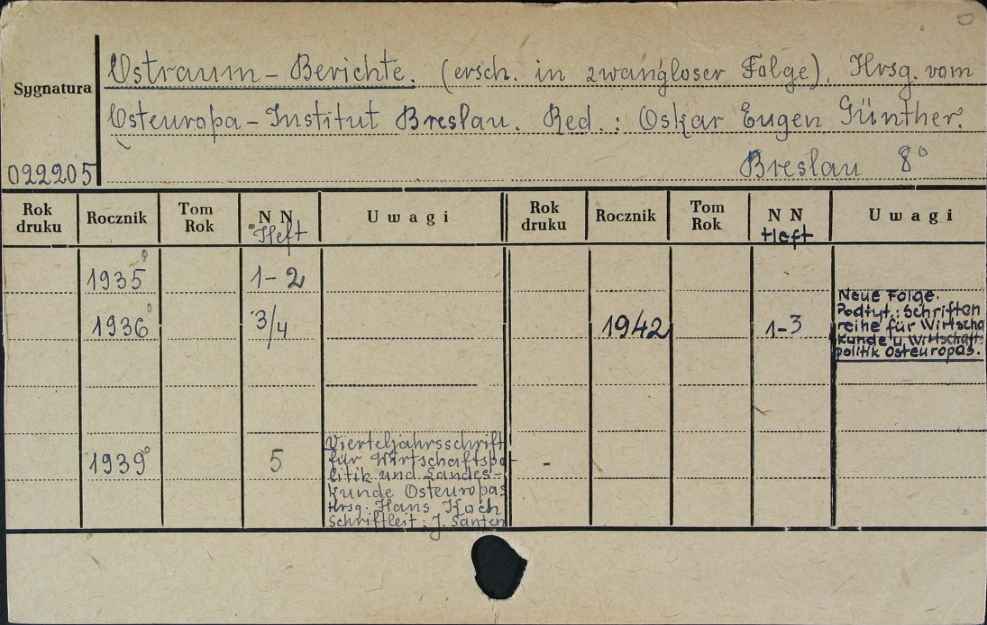 Ostraum - Berichte. (ersch. in zwangloser Folge). Hrsg. vom
Sygnatura
Osteuropa - Institut Breslau. Red.: Oskar Eugen Günther.
022205
Breslau 8°
Rok druku Rocznik Tom Rok N N Heft Uwagi Rok druku Rocznik Tom Rok N N Heft Uwagi
1935° 1-2
1936° 3/4
1942 1-3
Neue Folge.
Podtyt.: Schriften
reihe für Wirtscha
kunde u. Wirtschaft
politik Osteuropas.
1939° 5
Vierteljahrsschrift
für Wirtschaftspo-
litik und Landes-
kunde Osteuropas
Hrsg. Hans Koch
Schriftleit: J. Santen
-